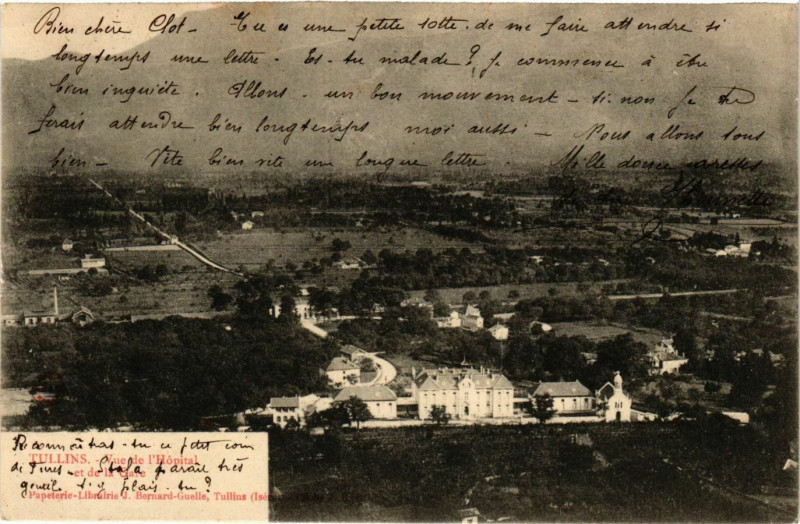 Bien chère Clot - Tu es une petite sotte de me faire attendre si
longtemps une lettre. Es-tu malade? Je commence à être
bien inquiète. Allons - un bon mouvement - si non je te
ferais attendre bien longtemps moi aussi - Nous allons tous
bien - Vite bien vite une longue lettre. Mille douces caresses
de ta
Reconnaîtras-tu ce petit coin
TULLINS. - Vue de l'Hôpital
de
et de la Gare
paraît très
gentil t'y plais-tu?
Papeterie-Librairie J. Bernard-Guelle, Tullins (Isère)